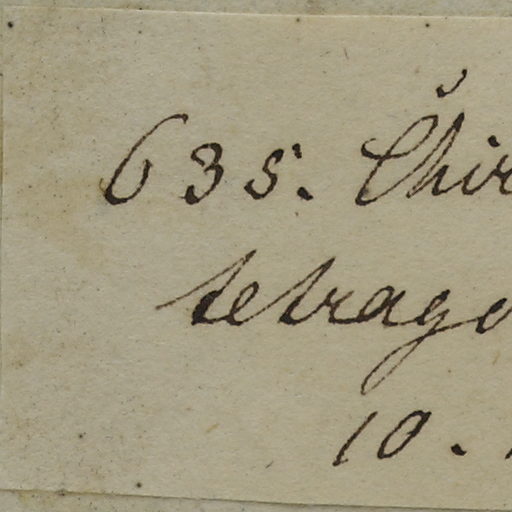 635. Chir
tetrago
10.